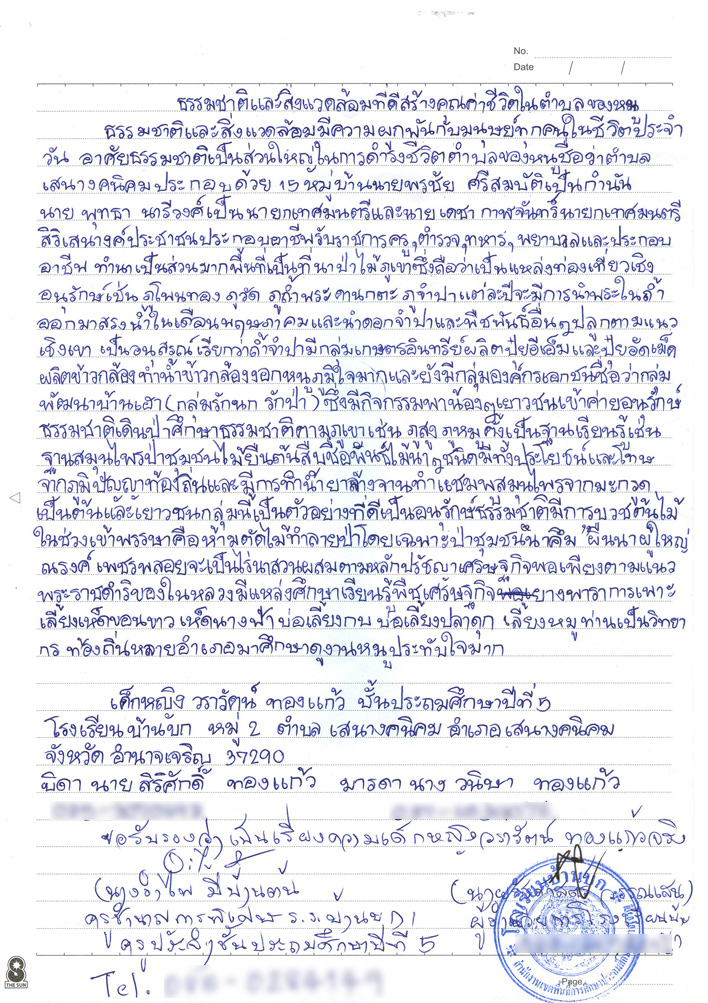 No.
Date / /
ธรรมชาติและสิ่งแวดล้อมที่ดีสร้างคุณค่าชีวิตในตำบลของหนู
ธรรมชาติและสิ่งแวดล้อมมีความผูกพันกับมนุษย์ทุกคนในชีวิตประจำ
วัน อาศัยธรรมชาติเป็นส่วนใหญ่ในการดำรงชีวิตตำบลของหนูชื่อว่าตำบล
เสนางคนิคมประกอบด้วย 15 หมู่บ้านนายพรชัย ศรีสมบัติเป็นกำนัน
นาย พุทธา นารีวงศ์เป็นนายกเทศมนตรีและนายเดชา กาพจันทร์นายกเทศมนตรี
สิริเสนางค์ประชาชนประกอบอาชีพรับราชการครู,ตำรวจ,ทหาร,พยาบาลและประกอบ
อาชีพ ทำนาเป็นส่วนมากพื้นที่เป็นที่นาป่าไม้ภูเขาซึ่งถือว่าเป็นแหล่งท่องเที่ยวเชิง
อนุรักษ์เช่น ภูโพนทอง ภูวัด ภูถ้ำพระ ดานกตะ ภูจำปาแต่ละปีจะมีการนำพระในถ้ำ
ออกมาสรงน้ำในเดือนพฤษภาคมและนำดอกจำปาและพืชพันธ์อื่นๆปลูกตามแนว
เชิงเขา เป็นอนุสรณ์เรียกว่าถ้ำจำปามีกลุ่มเกษตรอินทรีย์ผลิตปุ๋ยอีเอ็มและปุ๋ยอัดเม็ด
ผลิตข้าวกล้องทำน้ำข้าวกล้องงอกหนูภูมิใจมากและยังมีกลุ่มองค์กรเอกชนชื่อว่ากลุ่ม
พัฒนาบ้านเฮา(กลุ่มรักนก รักป่า)ซึ่งมีกิจกรรมพาน้องๆเยาวชนเข้าค่ายอนุรักษ์
ธรรมชาติเดินป่าศึกษาธรรมชาติตามภูเขาเช่น ภูสูง ภูหมู ตั้งเป็นฐานเรียนรู้เช่น
ฐานสมุนไพรป่าชุมชนไม้ยืนต้นสืบชื่อพันธุ์ไม้นาๆชนิดมีทั้งประโยชน์และโทษ
จากภูมิปัญญาท้องถิ่นและมีการทำน้ำยาล้างจานทำแชมพูสมุนไพรจากมะกรูด
เป็นต้นและเยาวชนกลุ่มนี้เป็นตัวอย่างที่ดีเป็นอนุรักษ์ธรรมชาติมีการบวชต้นไม้
ในช่วงเข้าพรรษาคือห้ามตัดไม้ทำลายป่าโดยเฉพาะป่าชุมชนน้ำคึม ผืนนาผู้ใหญ่
ณรงค์ เพชรพลอยจะเป็นไร่นาสวนผสมตามหลักปรัชญาเศรษฐกิจพอเพียงตามแนว
พระราชดำริของในหลวงมีแหล่งศึกษาเรียนรู้พืชเศรษฐกิจยางพาราการเพาะ
เลี้ยงเห็ดขอนขาว เห็ดนางฟ้า บ่อเลี้ยงกบ บ่อเลี้ยงปลาดุก เลี้ยงหมูท่านเป็นวิทยา
กร ท้องถิ่นหลายอำเภอมาศึกษาดูงานหนูประทับใจมาก
เด็กหญิง วรารัตน์ ทองแก้ว ชั้นประถมศึกษาปีที่ 5
โรงเรียนบ้านบก หมู่ 2 ตำบล เสนางคนิคม อำเภอ เสนางคนิคม
จังหวัด อำนาจเจริญ 37290
บิดา นาย สิริศักดิ์ ทองแก้ว มารดา นาง วนิษา ทองแก้ว
ขอรับรองว่าเป็นเรียงความเด็กหญิงวรารัตน์ ทองแก้วจริง
(นางรำไพ ปี่บ้านต้น)
ครูชำนาญการพิเศษ ร.ร.บ้านบก
ครูประจำชั้นประถมศึกษาปีที่ 5
Tel.
THE SUN
Page